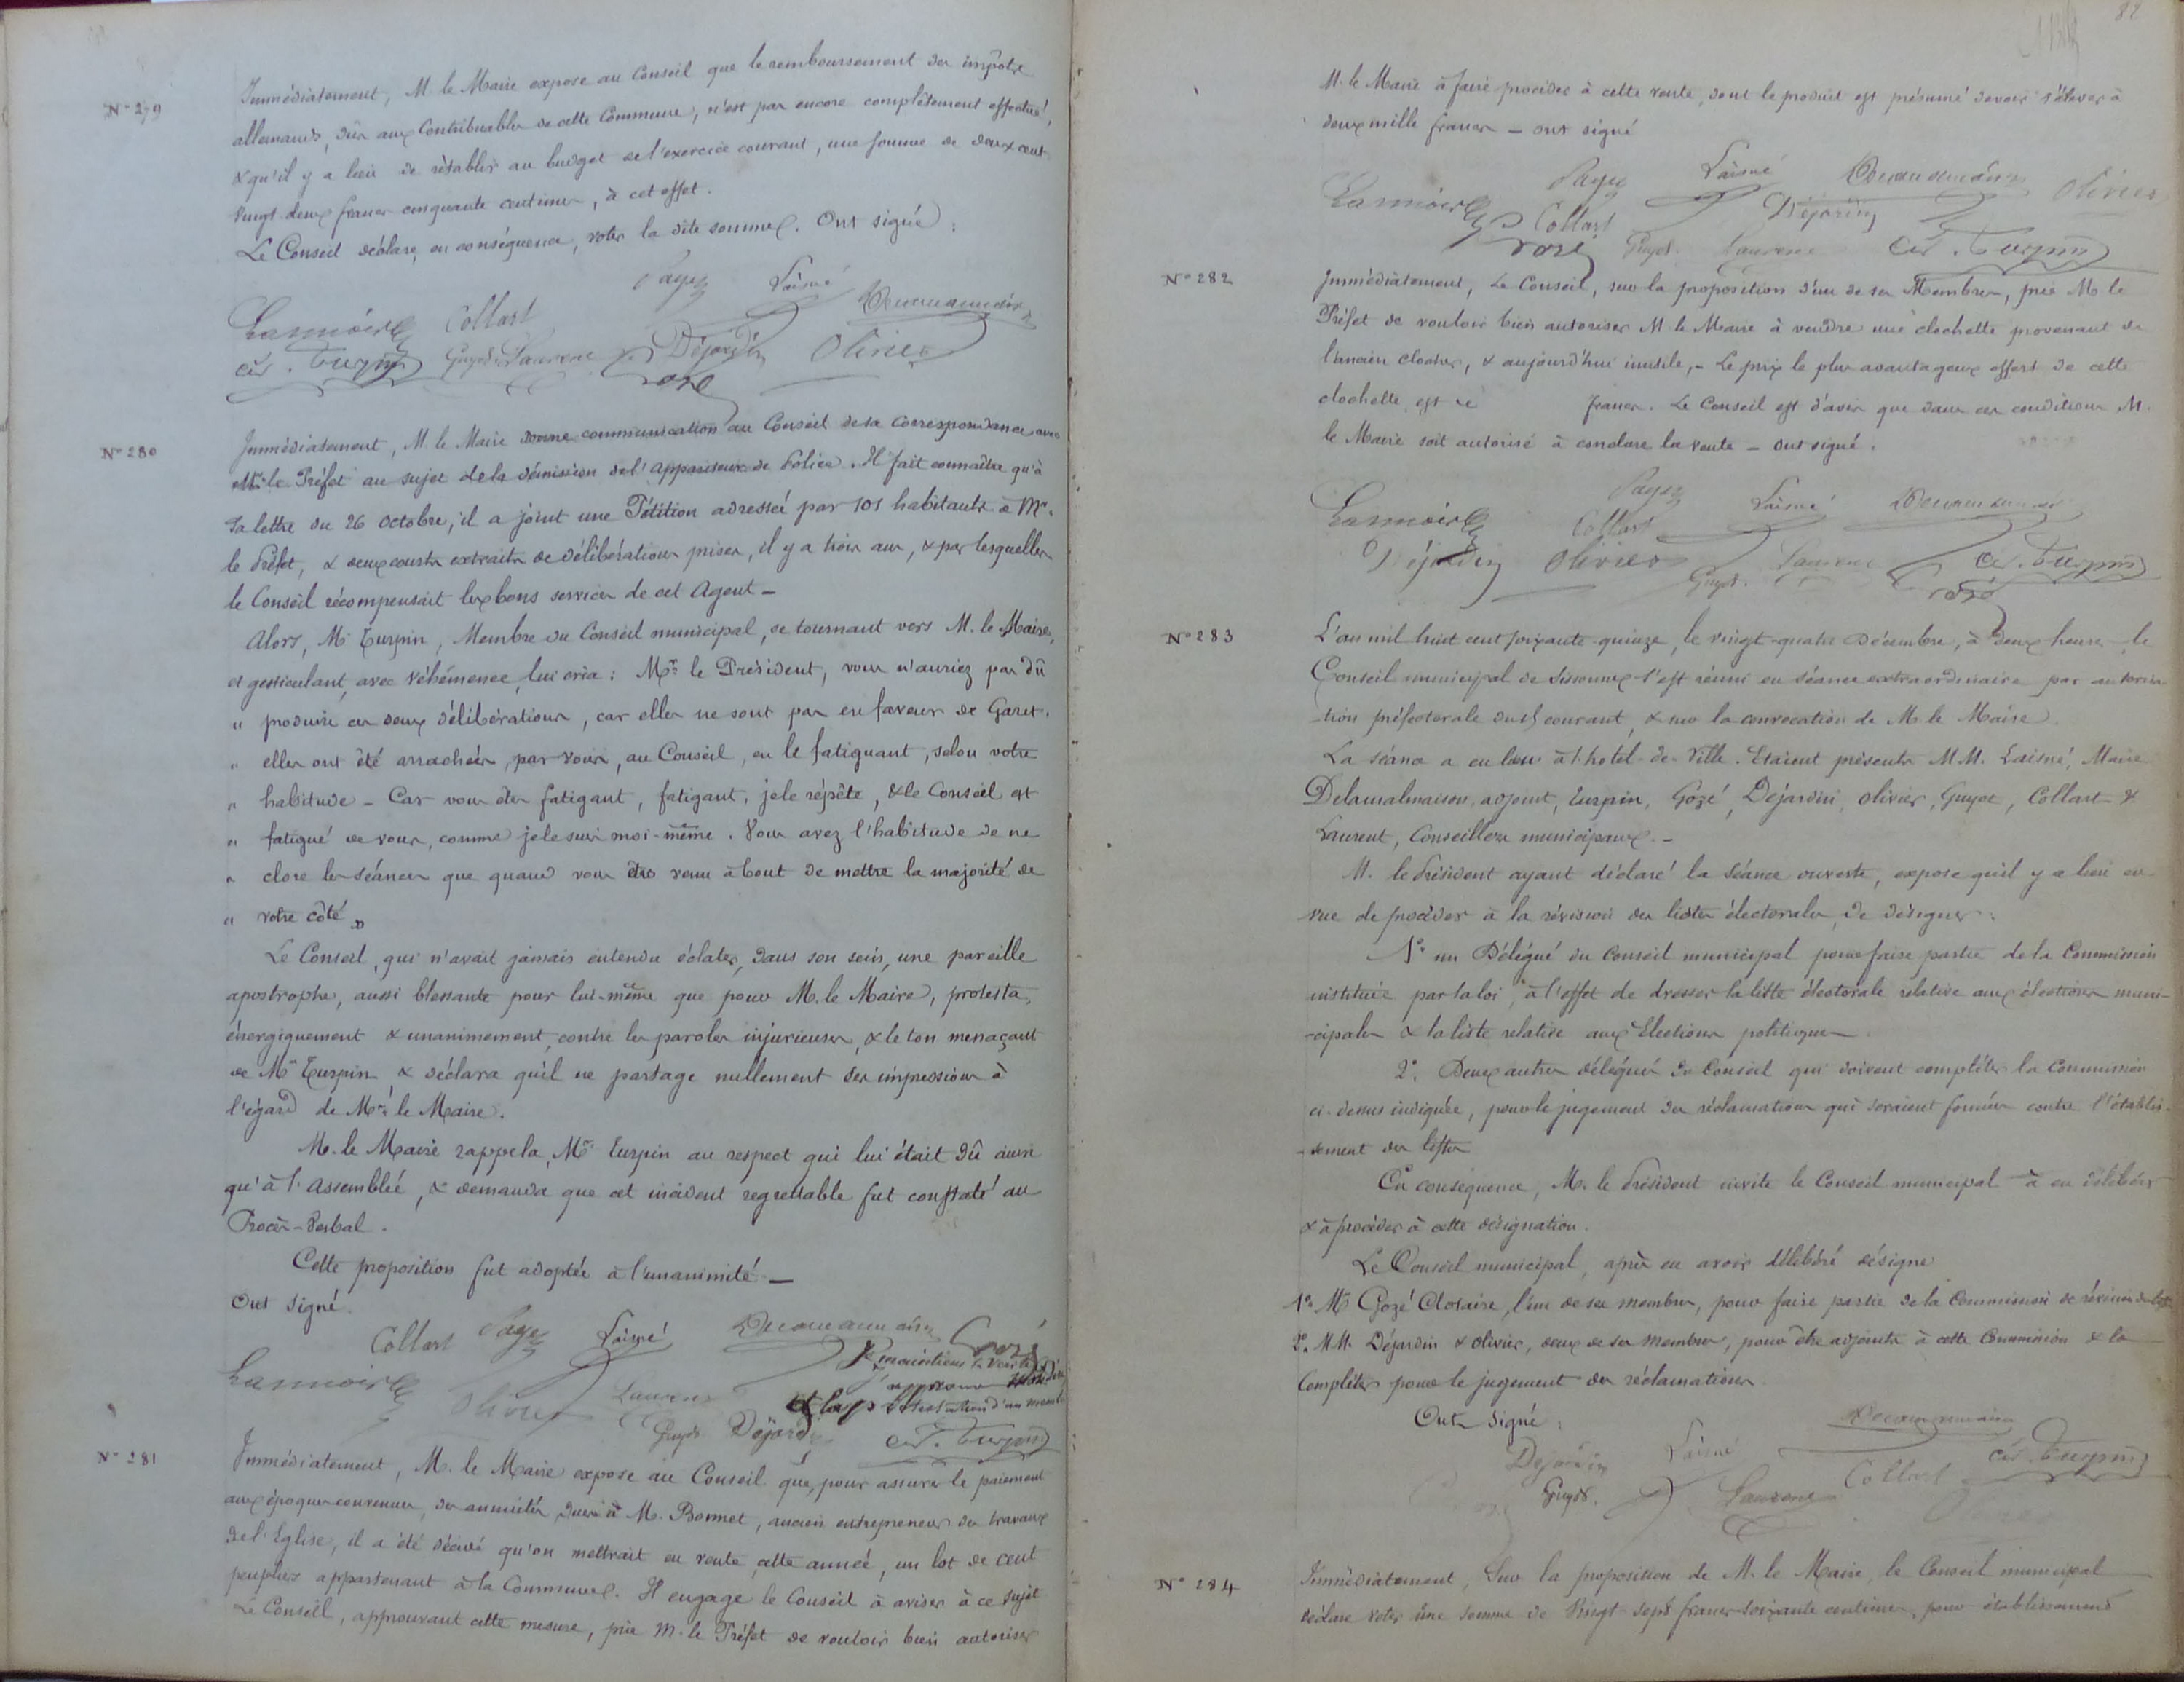 N° 279
Immédiatement, M. le Maire expose au Conseil que le remboursement des impôts
allemands, dûs aux Contribuables de cette Commune, n'est pas encore complètement effectué,
& qu'il y a lieu de rétablir au budget de l'exercice courant, une somme de deux cent
vingt deux francs cinquante centimes, à cet effet.
Le Conseil déclare, en conséquence, voter la dite somme. Ont signé :
Payez Laisné
Lannois Collart
Cés. Turpin Guyot Laurent Déjardin Olivier
Gozé
N° 280
Immédiatement, M. le Maire donne communication au Conseil de sa correspondance avec
M. le Préfet au sujet de la démission de l'appariteur de Police. Il fait connaître qu'à
sa lettre du 26 octobre, il a joint une Pétition adressée par 101 habitants à Mr.
le Préfet, & deux courts extraits de délibérations prises, il y a trois ans, & par lesquelles
le Conseil récompensait les bons services de cet Agent —
Alors, Mr Turpin, Membre du Conseil municipal, se tournant vers M. le Maire,
et gesticulant, avec véhémence, lui cria : Mr le Président, vous n'auriez pas dû
" produire ces deux délibérations, car elles ne sont pas en faveur de Garet.
" elles ont été arrachées, par vous, au Conseil, en le fatiguant, selon votre
" habitude — Car vous êtes fatigant, fatigant, je le répète, & le Conseil est
" fatigué de vous, comme je le suis moi-même. Vous avez l'habitude de ne
" clore les séances que quand vous êtes venu à bout de mettre la majorité de
" votre côté »
Le Conseil, qui n'avait jamais entendu éclater, dans son sein, une pareille
apostrophe, aussi blessante pour lui-même que pour M. le Maire, protesta,
énergiquement & unanimement, contre les paroles injurieuses, & le ton menaçant
de Mr Turpin, & déclara qu'il ne partage nullement ses impressions à
l'égard de Mr le Maire.
M. le Maire rappela, Mr Turpin au respect qui lui était dû ainsi
qu'à l'assemblée, & demanda que cet incident regrettable fut constaté au
Procès-Verbal.
Cette proposition fut adoptée à l'unanimité —
Ont signé.
Collart Payez Laisné Gozé
Je maintiens la vérité
Lannois Olivier Laurent
et la protestation d'un membre
Guyot Déjardin Cés. Turpin
N° 281
Immédiatement, M. le Maire expose au Conseil que, pour assurer le paiement
aux époques convenues, des annuités dues à M. Bonnet, ancien entrepreneur des travaux
de l'Eglise, il a été décidé qu'on mettrait en vente, cette année, un lot de cent
peupliers appartenant à la Commune. Il engage le Conseil à aviser à ce sujet
Le Conseil, approuvant cette mesure, prie M. le Préfet de vouloir bien autoriser
82
M. le Maire à faire procéder à cette vente, dont le produit est présumé devoir s'élever à
deux mille francs — ont signé
Payez Laisné Olivier
Lannois Collart Déjardin
Gozé Guyot Laurent Cés. Turpin
N° 282
Immédiatement, Le Conseil, sur la proposition d'un de ses Membres, prie M. le
Préfet de vouloir bien autoriser M. le Maire à vendre une clochette provenant de
l'ancien clocher, & aujourd'hui inutile, — Le prix le plus avantageux offert de cette
clochette est de francs. Le Conseil est d'avis que dans ces conditions M.
le Maire soit autorisé à conclure la vente — ont signé.
Payez Laisné
Lannois Collart
Déjardin Olivier Guyot Laurent Cés. Turpin
Gozé
N° 283
L'an mil huit cent soixante-quinze, le vingt-quatre Décembre, à deux heures, le
Conseil municipal de Sissonne s'est réuni en séance extraordinaire par autorisa-
-tion préfectorale du courant, & sur la convocation de M. le Maire
La séance a eu lieu à l'hotel-de-Ville. Etaient présents M.M. Laisné, Maire
Delamalmaison, adjoint, Turpin, Gozé, Déjardin, Olivier, Guyot, Collart &
Laurent, Conseillers municipaux. —
M. le Président ayant déclaré la séance ouverte, expose qu'il y a lieu en
vue de procéder à la révision des listes électorales, de désigner :
1° un Délégué du Conseil municipal pour faire partie de la Commission
instituée par la loi à l'effet de dresser la liste électorale relative aux élections muni-
-cipales & la liste relative aux Elections politiques
2° Deux autres délégués du Conseil qui doivent compléter la Commission
ci-dessus indiquée, pour le jugement des réclamations qui seraient formées contre l'établis-
-sement des listes
En conséquence, M. le Président invite le Conseil municipal à en délibérer
& à procéder à cette désignation.
Le Conseil municipal, après en avoir délibéré désigne
1° Mr Gozé Clotaire, l'un de ses membres, pour faire partie de la Commission de révision des listes
2° M.M. Déjardin & Olivier, deux de ses membres, pour être adjoints à cette Commission & la
Compléter pour le jugement des réclamations
Ont signé :
Déjardin Laisné Cés. Turpin
Guyot. Laurent Collart
Olivier
N° 284
Immédiatement, Sur la proposition de M. le Maire, le Conseil municipal
déclare voter une somme de Vingt-sept francs soixante centimes, pour établissement